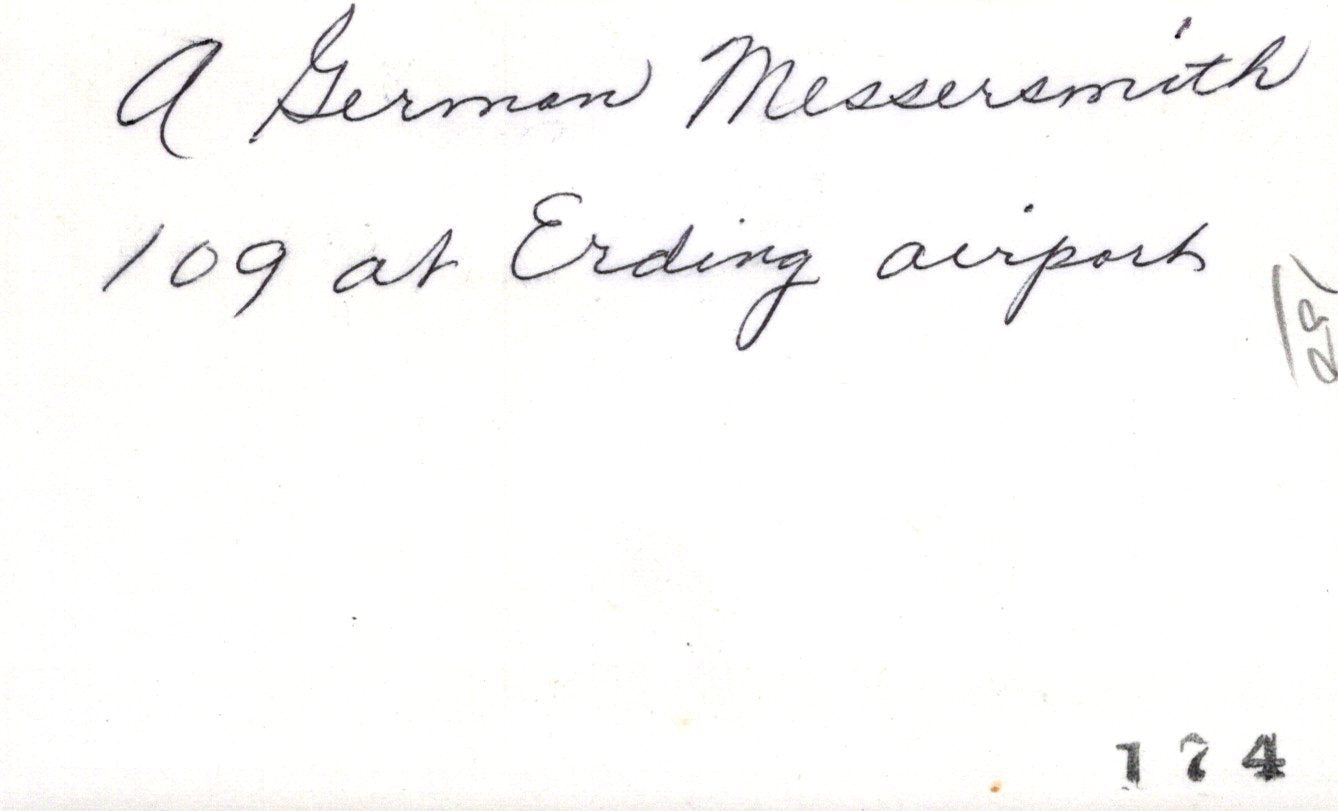 A German Messersmith
109 at Erding airport
174